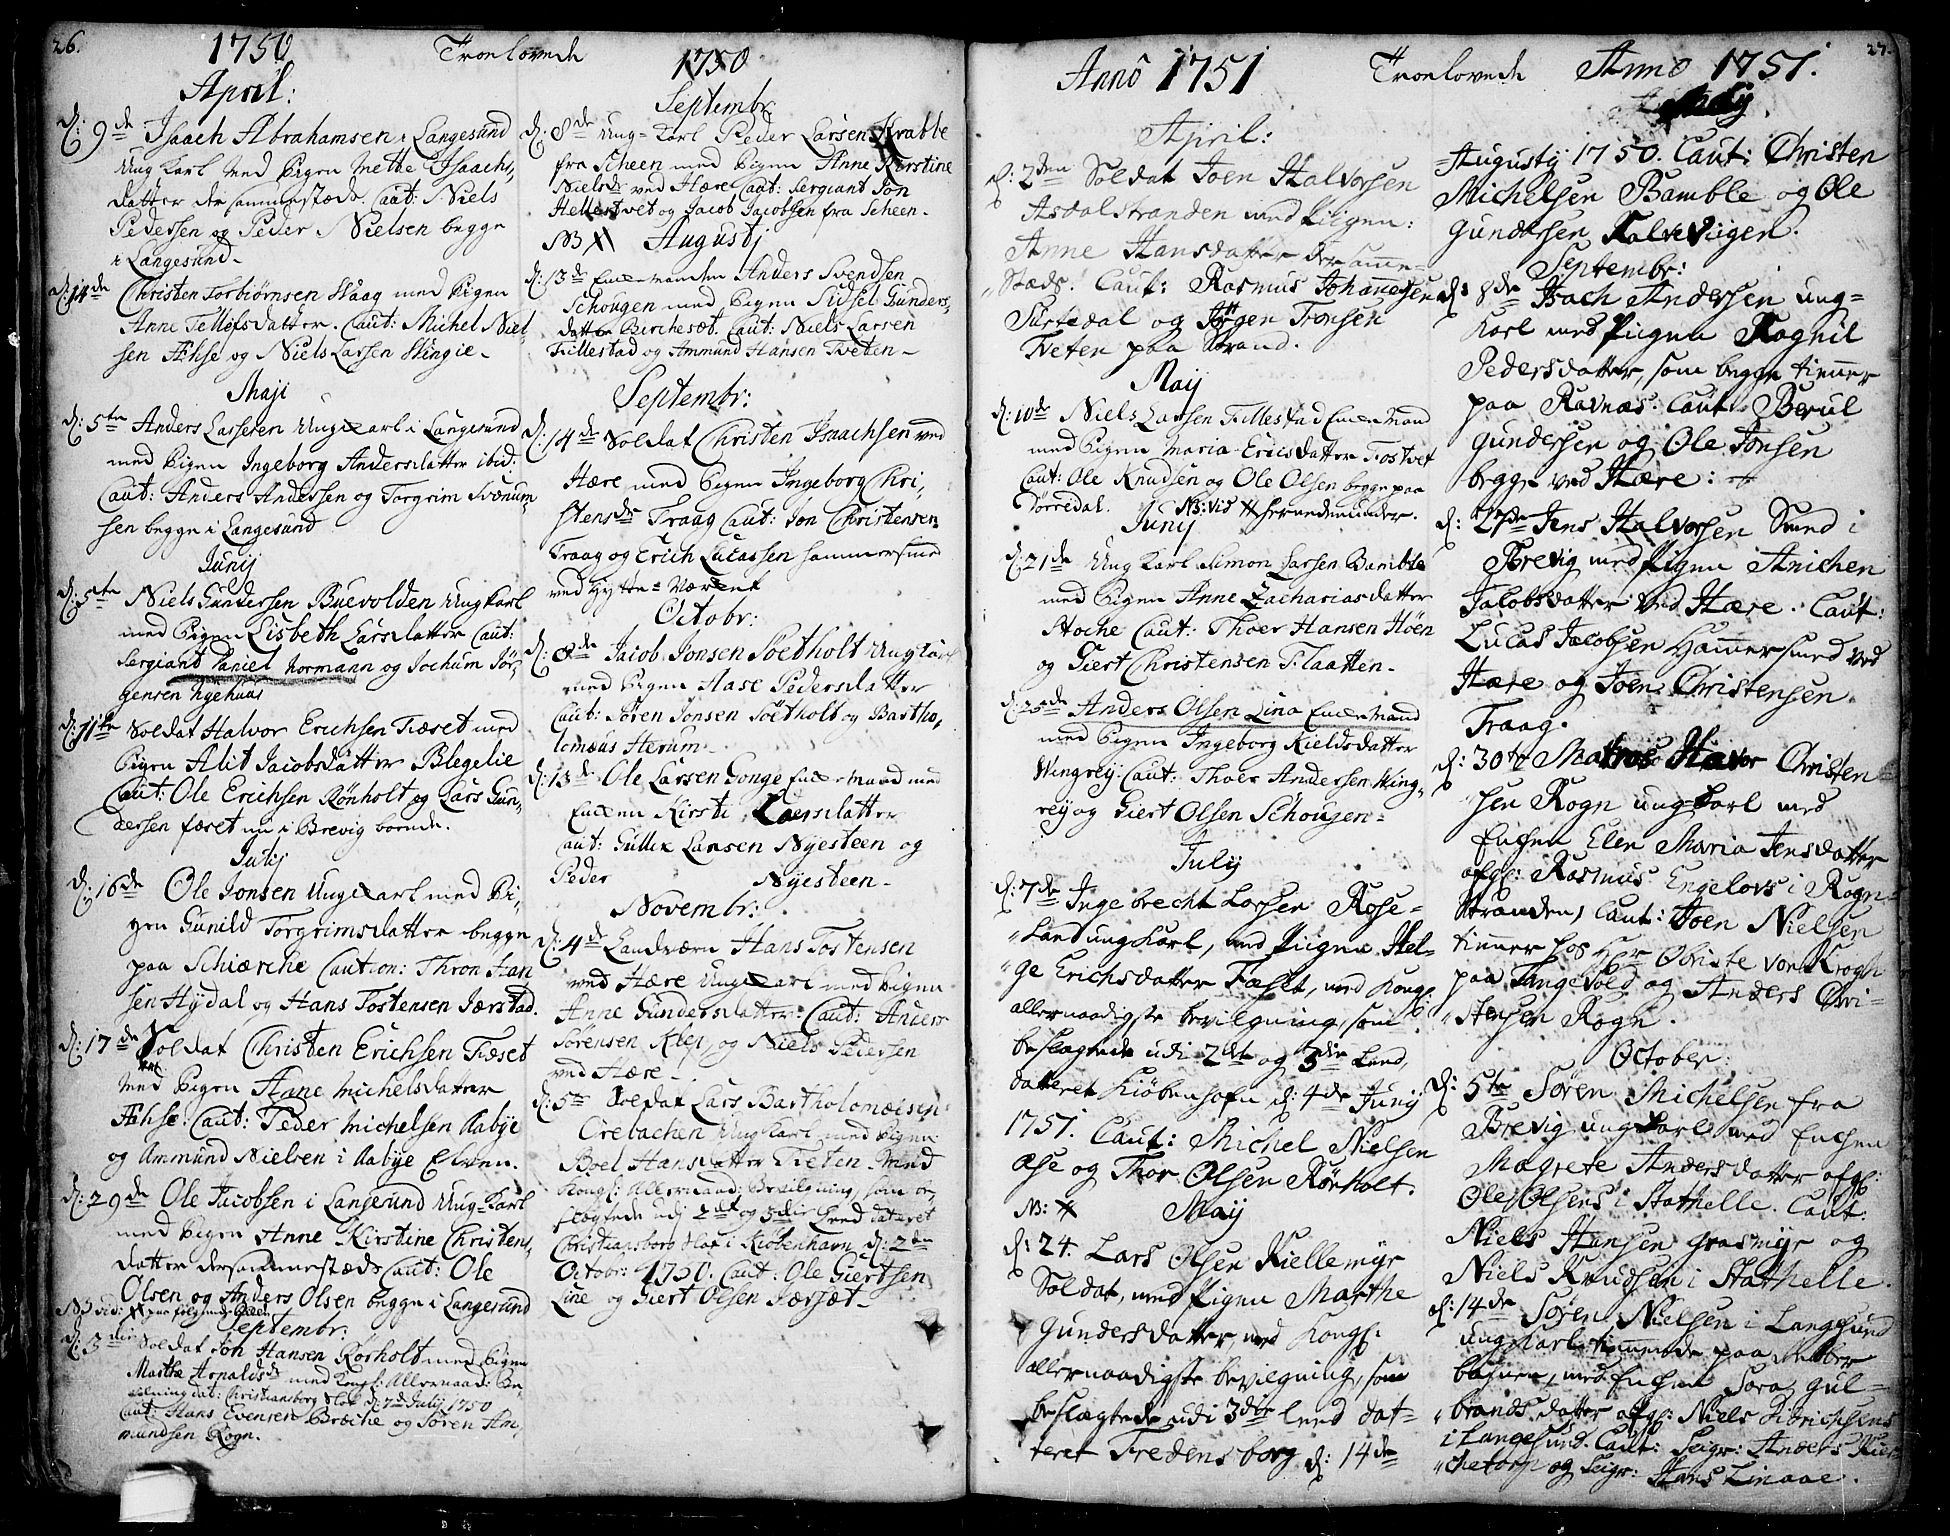 26.
1750 Troelovede
April:
d: 9de Isaach Abrahamsen i Langesund
ung karl med Pigen Mette Isaachs,
datter der sammestæds. Caut: Niels
Pedersen og Peder Nielsen begge
i Langesund.
d: 14de Christen Torbiörnsen Skaag med Pigen
Anne Tellofsdatter. Caut: Michel Niel
sen Æhse og Niels Lassen Skingie.
Maji
d: 5te Anders Lassesen Ungkarl i Langesund
med Pigen Ingeborg Andersdatter ibid:
Caut: Anders Andersen og Torgrim Svenum
sen begge i Langesund
Junij
d: 5te Niels Gundersen Buevolden Ungkarl
med Pigen Lisbeth Larsdatter Caut:
Sergiant Daniel Normann og Jochum Jör,
gensen
d: 11te Soldat Halvor Erichsen Fæset med
Pigen Alit Jacobsdatter Blegelie
Caut: Ole Erichsen Rönholt og Lars Gun,
dersen fæset nu i Brevig boende.
Julij
d: 16de Ole Jonsen Ungkarl med Pi,
gen Gunild Torgrimsdatter begge
paa Schiærche Caution: Thron Han
sen Hydal og Hans Tostensen Jærstad.
d: 17de Soldat Christen Erichsen Fæset
med Pigen Anne Michelsdatter
Æhse. Caut: Peder Michelsen Aabye
og Ammund Nielsen i Aabye Elven.
d: 29de Ole Jacobsen i Langesund Ung-karl
med Pigen Anne Kirstine Christens,
datter dersammestæds Caut: Ole
Olsen og Anders Olsen begge i Langesund
NB vid:
Septembr:
d: 3die Soldat Jon Hansen Rörholt med Pigen
Marthe Arnoldsd: med Kongl: Allernaad: Be
vilning dat: Christiansborg Slot d: 7de Julij 1750
Caut: Hans Evensen Bræche og Sören Am,
mundsen Rogn.
1750
Septembr
d: 8de Ung-Karl Peder Larsen Krabbe
fra Scheen med Pigen Anne Kirstine
Nielsd: ved Hære Caut: Sergiant Jon
Hellestvet og Jacob Jacobsen fra Scheen.
NB Augustj
d: 13de Enkemanden Anders Svendsen
Schougen med Pigen Sidsel Gunders,
datter Birchesæt. Caut: Niels Larsen
Tillestad og Ammund Hansen Tveten.
Septembr:
d: 14de Soldat Christen Isaachsen ved
Hære med Pigen Ingeborg Chri,
stensdr Traag Caut: Jon Christensen
Traag og Erich Lucassen hammersmed
ved Hytte-Værket
Octobr:
d: 8de Jacob Jonsen Söetholt Ungkarl
med Pigen Aase Pedersdatter
Caut: Sören Jonsen Söetholt og Bartho,
lomæus Herum.
d: 13de Ole Larsen Gonge Enkemand med
Enken Kirsti Larsdatter
Caut: Gullik Larsen Nyesteen og
Peder Nyesteen.
Novembr:
d: 4de Landværn Hans Tostensen
ved Hære Ungkarl med Pigen
Anne Gundersdatter Caut: Anders
Sörensen Klep, og Niels Pedersen
ved Hære.
d: 5te Soldat Lars Bartholomæisen
Orebachen Ungkarl med Pigen
Boel Hansdatter Tveten. Med
Kongl: Allernaad: Bevilgning, som be,
slægtede udj 2det og 3die Leed dateret
Christiansborg Slot i Kiöbenhavn d: 2den
Octobr: 1750. Caut: Ole Giertsen
Line og Giert Olsen Jærsæt.
Annô 1751
April:
d: 2den Soldat Joen Halvorsen
Asdalstranden med Piigen:
Anne Hansdatter dersamme-
Stæds. Caut: Rasmus Johannesen
Surtedal og Jörgen Tronsen
Tveten paa Strand.
May
d: 10de Niels Larsen Tillestad Enkemand
med Pigen Maria Ericsdatter Tostvet
Caut: Ole Knudsen og Ole Olsen begge paa
Dörredal. NB: vid herunder.
Junij
d: 21de Ung karl Simon Larsen Bamble
med Pigen Anne Zachariasdatter
Stoche Caut: Thoer Hansen Höen
og Giert Christensen Plaatten.
d: 25de Anders Olsen Lina Enkemand
med Pigen Ingeborg Kieldsdatter
Wingrey: Caut: Thoer Andersen Wing,
rey og Giert Olsen Schougen.
July
d: 7de Ingebrecht Larsen Rose-
Land ungkarl, med Piigen Hel-
ge Erichsdatter Fæset, med Kongl:
allernaadigste bevilgning, som
beslegtede udi 2det og 3die Leed,
dateret Kiöbenhafn d: 4de Junij
1751. Caut: Michel Nielsen
Æse og Thor Olsen Rörholt.
NB: May
d: 24. Lars Olsen Kiellemyr
Soldat, med Piigen Marthe
Gundersdatter, med Kongl:
allernaadigste bevilgning, som
beslægtede udi 3die leed dat-
teret Fredensborg d: 14de
Troelovede Anno 1751. 27.
Augustij 1750. Caut: Christen
Michelsen Bamble og Ole
Gundersen Kalveviigen.
Septembr:
d: 8de Isach Andersen ung-
Karl med Piigen Ragnil
Pedersdatter, som begge tienner
paa Ravnæs. Caut: Berul
gundersen og Ole Jonsen
begge ved Hære:
d: 27de Jens Halvorsen Smed i
Brevig med Piigen Anichen
Jacobsdatter ved Hære. Caut:
Lucas Jacobsen Hammersmed ved
Hære og Joen Christensen
Traag.
d: 30te Matros Halvor Christen
sen Rogn ungkarl med
Enchen Elen Maria Jensdatter
afgl: Rasmus Engelovs i Rogn-
Stranden, Caut: Joen Nielsen
tienner hos Hr Obriste von Krogh
paa Tangevold og Anders Chri-
stensen Rogn.
October:
d: 5te Sören Michelsen fra
Brevig ungkarl med Enchen
Magrete Andersdatter afgl:
Ole Olsens i Stathelle. Caut:
Niels Hansen grasmyr og
Niels Knudsen i Stathelle.
d: 14de Sören Nielsen i Langesund
ungkarl tienende paa
med Enchen Sara gul-
brands datter afgl: Niels Didrichsens
i Langesund. Caut: Seigr: Anders Kir-
chetorp og Seigr: Hans Linaae.